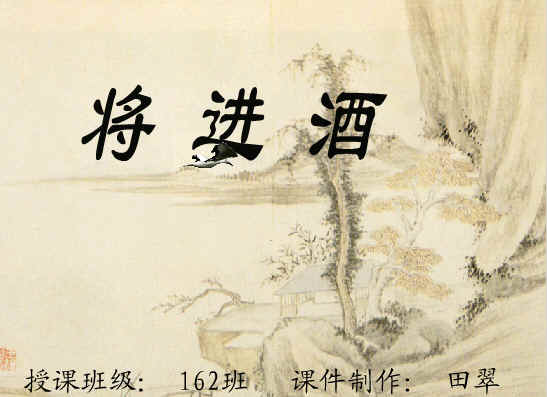 将进酒
授课班级: 162班 课件制作: 田翠